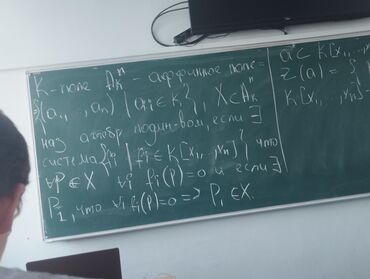 K - поле A_K^n - аффинное поле =
{(a_1, ..., a_n) | a_i ∈ K}, X ⊂ A_K^n
наз алгебр подмн-вом, если ∃
система {f_i | f_i ∈ K[x_1, ..., x_n]} что
∀P ∈ X ∀i f_i(P) = 0 и если ∃
P_1, что ∀i f_i(P) = 0 => P_1 ∈ X.
a ⊂ K[x_1, ...
Z(a) = {
K[x_1, ..., x_n]